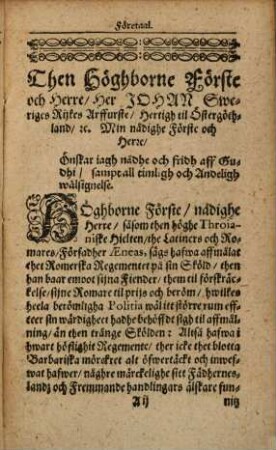 Företaal.
Then Höghborne Förste
och Herre/ Her JOHAN Swe-
riges Rijkes Arffurste/ Hertigh til Östergöth-
land/ ꝛc. Min nådighe Förste och
Herre/
Önskar iagh nådhe och fridh aff Gu-
dhi/ sampt all timligh och Andeligh
wälsignelse.
HÖghborne Förste/ nådighe
Herre/ såsom then höghe Throia-
niske Hielten/ the Latiners och Ro-
mares/ Förfadher Æneas, säges hafwa affmålat
thet Romerska Regementet på sin Sköld/ then
han baar emoot sijna Fiender/ them til förskräc-
kelse/ sijne Romare til prijs och beröm/ hwilkes
heela berömligha Politia wälitt större rum eff-
ter sin wärdigheet hadhe behöffdt sigh til affmål-
ning/ än then trånge Skölden: Altså hafwa i
hwart höfligitt Regemente/ ther icke thet blotta
Barbariska mörckret alt öfwertäckt och inwef-
wat hafwer/ någhre märckelighe sitt Fädhernes-
landz och Fremmande handlingars älskare fun-
A ij
nitz